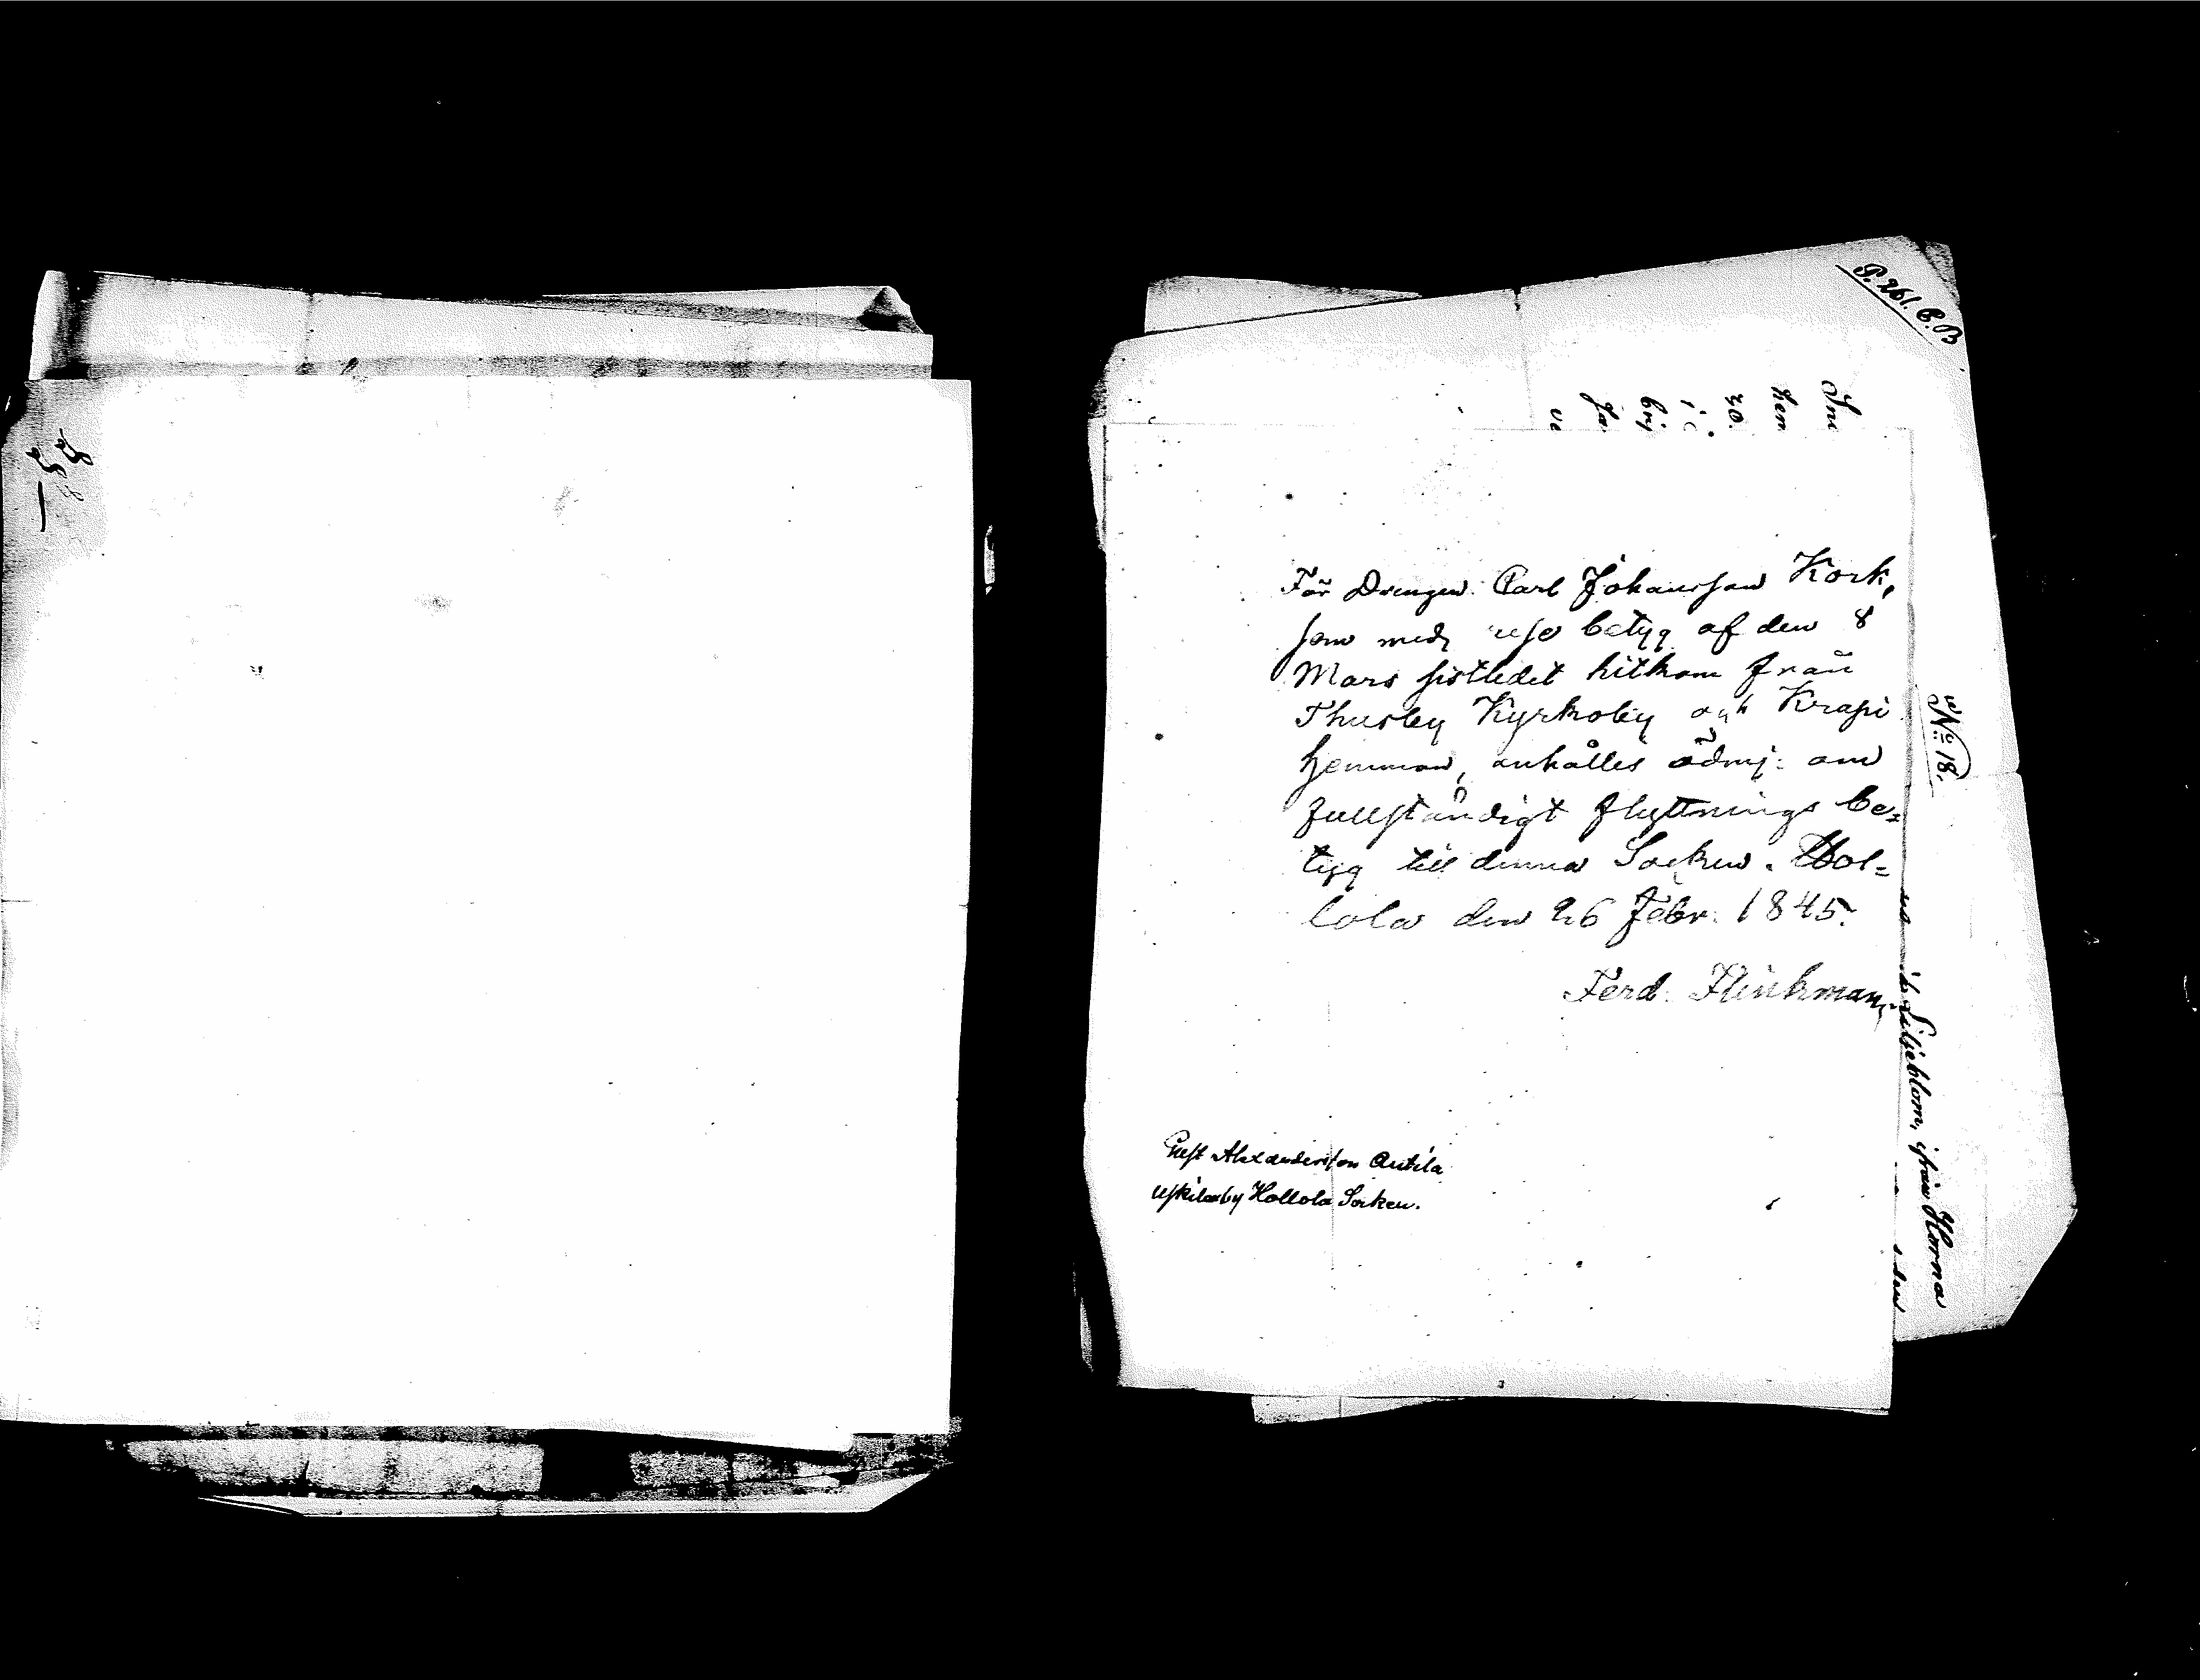 P. 261. C.B
Sme
hem
30.
i
brj
Ja
ve
För Drengen Carl Johansson Kork,
som med rese betyg af den 8
Mars sistledet hitkom från
Thusby Kyrkoby och Krapi
hemman, anhålles ödmj: om
fullständigt flyttnings be-
tyg till denna Socken. Hol-
lola den 26 Febr. 1845.
Ferd. Flinkman
Gust Alexandersson Antila
Uskilaby Hollola Socken.
No 18.
Liljeblom, ifrån Horna